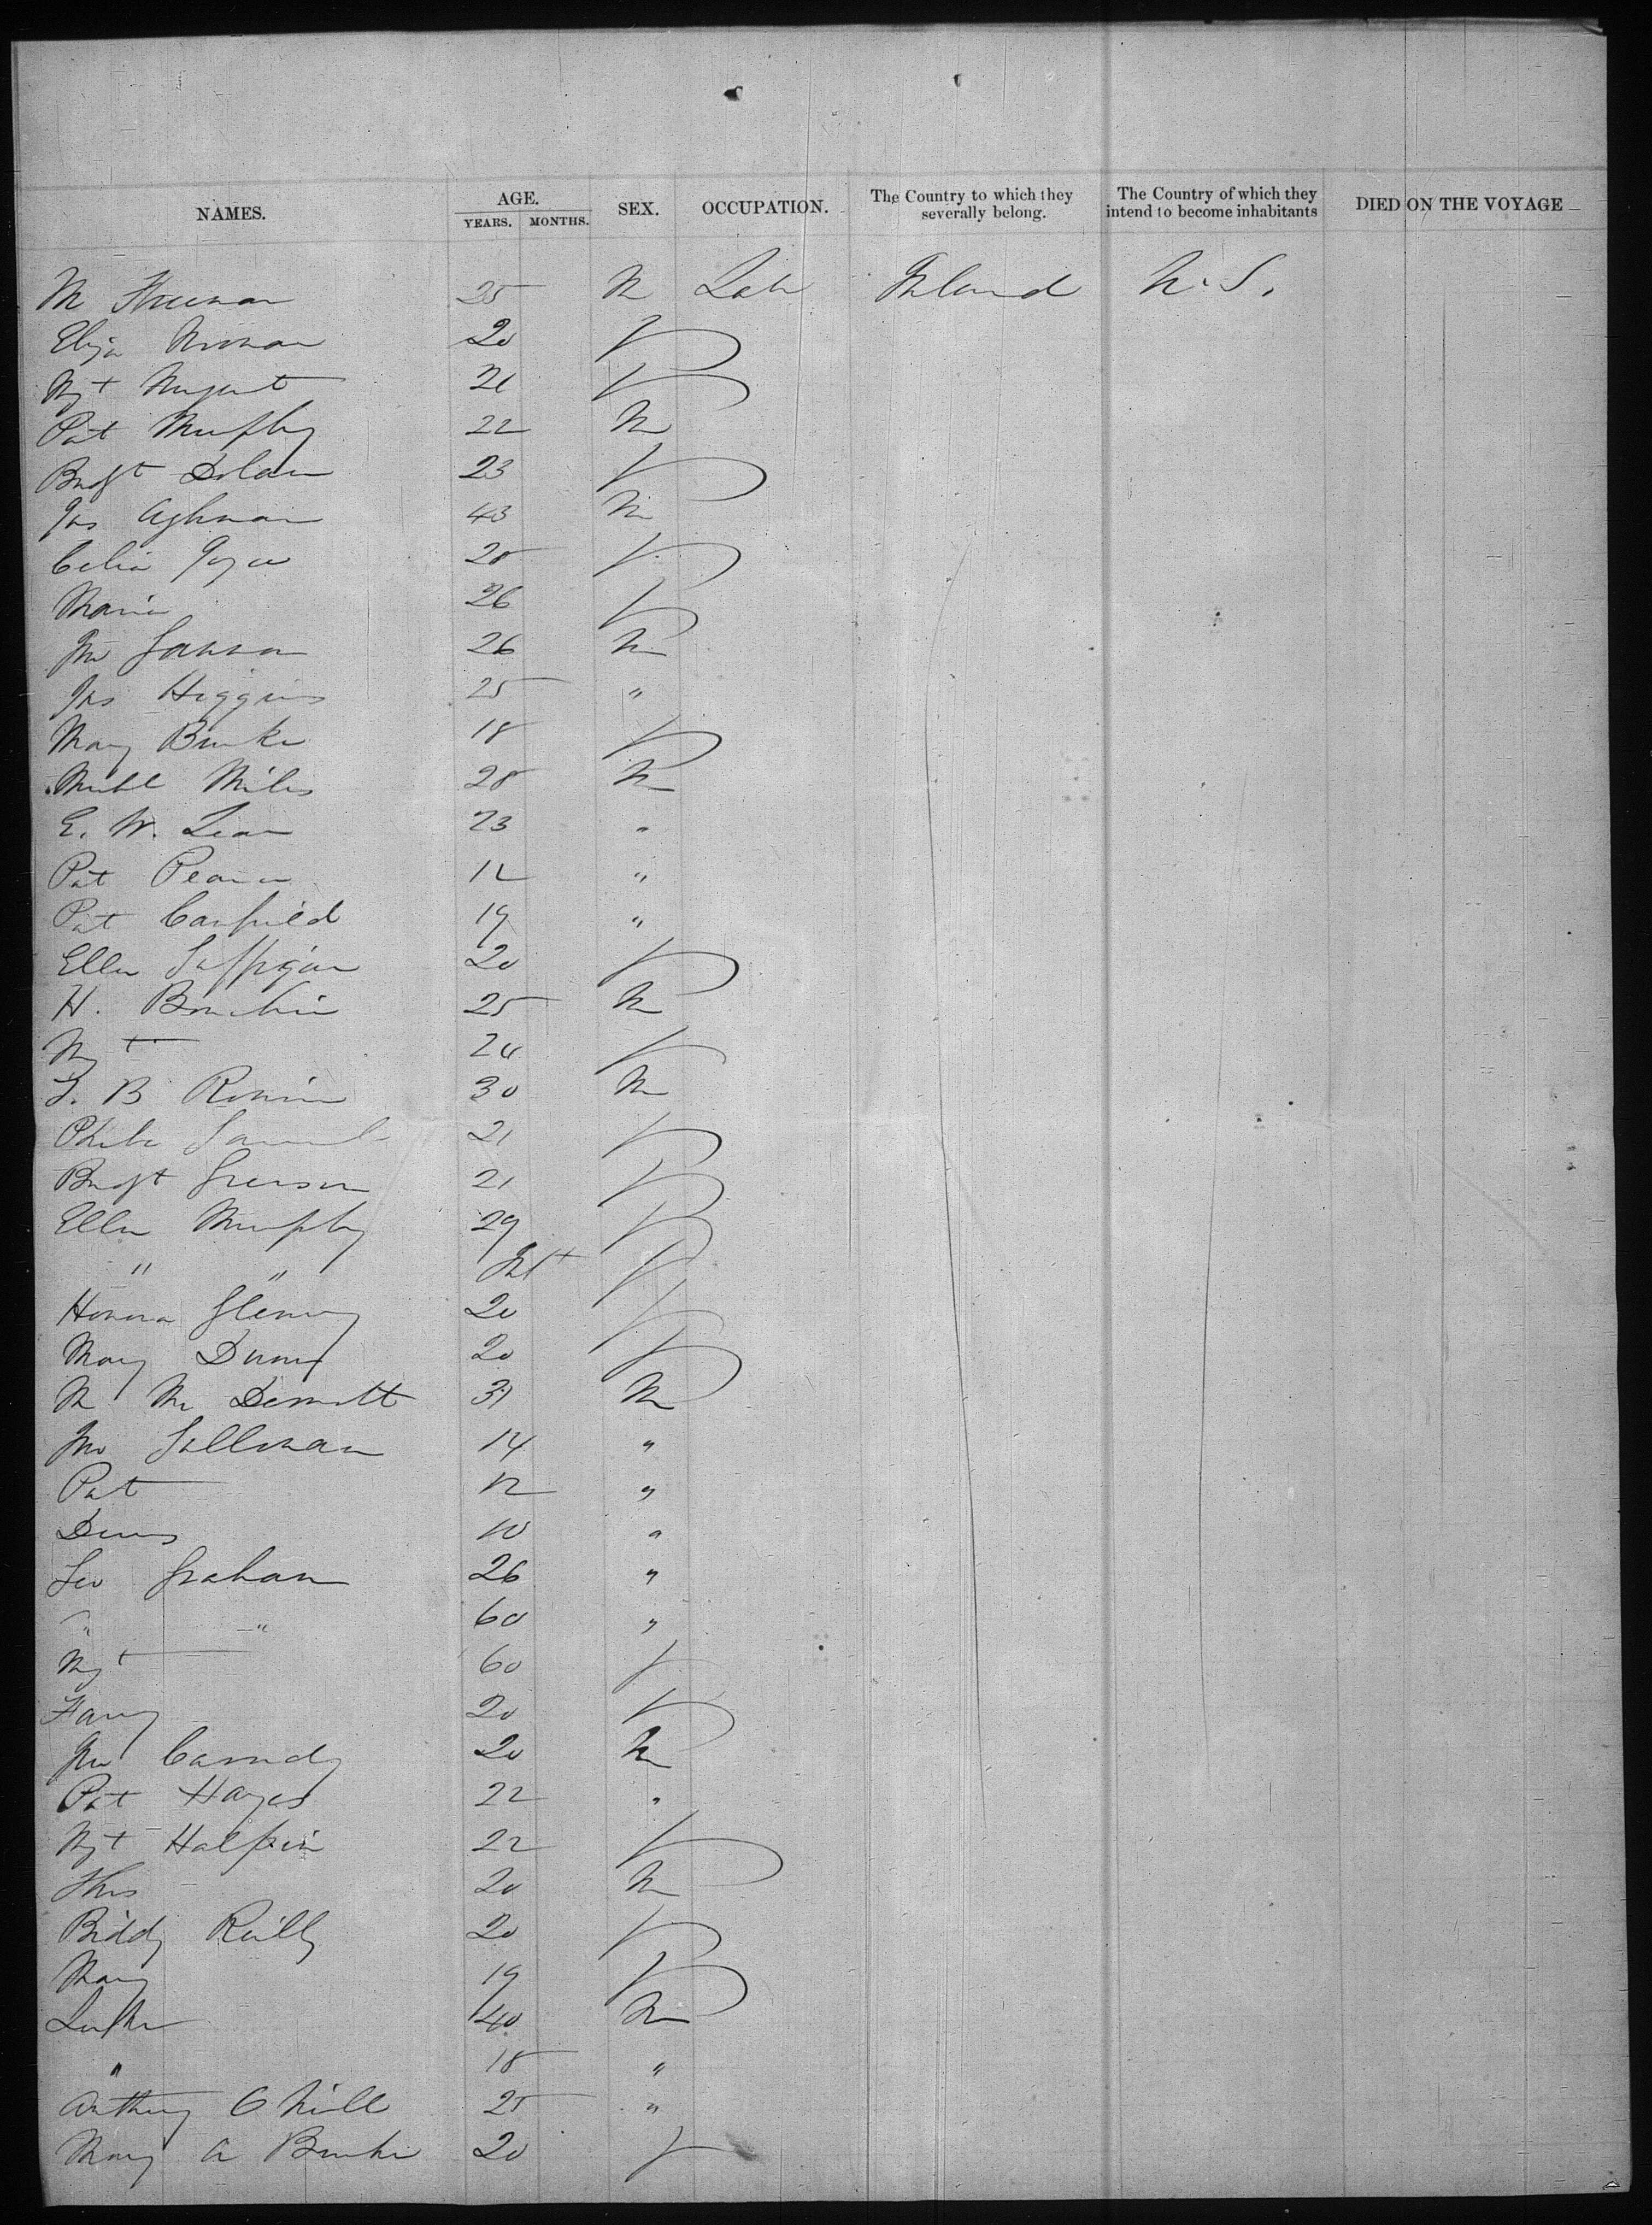 NAMES. AGE. YEARS. MONTHS. SEX. OCCUPATION. The Country to which they severally belong. The Country of which they intend to become inhabitants DIED ON THE VOYAGE
M 25 M Lab Ireland U.S.
Eliza Noonan 20
Mgt Nugent 21
Pat Murphy 22 M
Bridgt Dolan 23
Jas 43 M
Celia Joyce
Maria 26
Jno Gannon 26 M
Jas Higgins 25 "
Mary Burke 18
Michl Miles 28 M
E. W. 23 "
Pat 12 "
Pat Canfield 19 "
Ellen 20
H. 25 M
Mgt
30 M
Phebe 21
Bridgt 21
Ellen Murphy 29
" " Inft
Honora 20
Mary 20
M Mc Dermott 31 M
Jno Sullivan 14 "
Pat 12 "
Denis 10 "
Geo Graham 26 "
" " 60 "
Mgt 60
Fanny 20
Jno Cassidy 20 M
Pat Hayes 22 "
Mgt Halpin 22
Thos 20 M
Biddy Reilly 20
Mary 19
Luke 40 M
" 18 "
Anthony O Neill 25 "
Mary A Burke 20